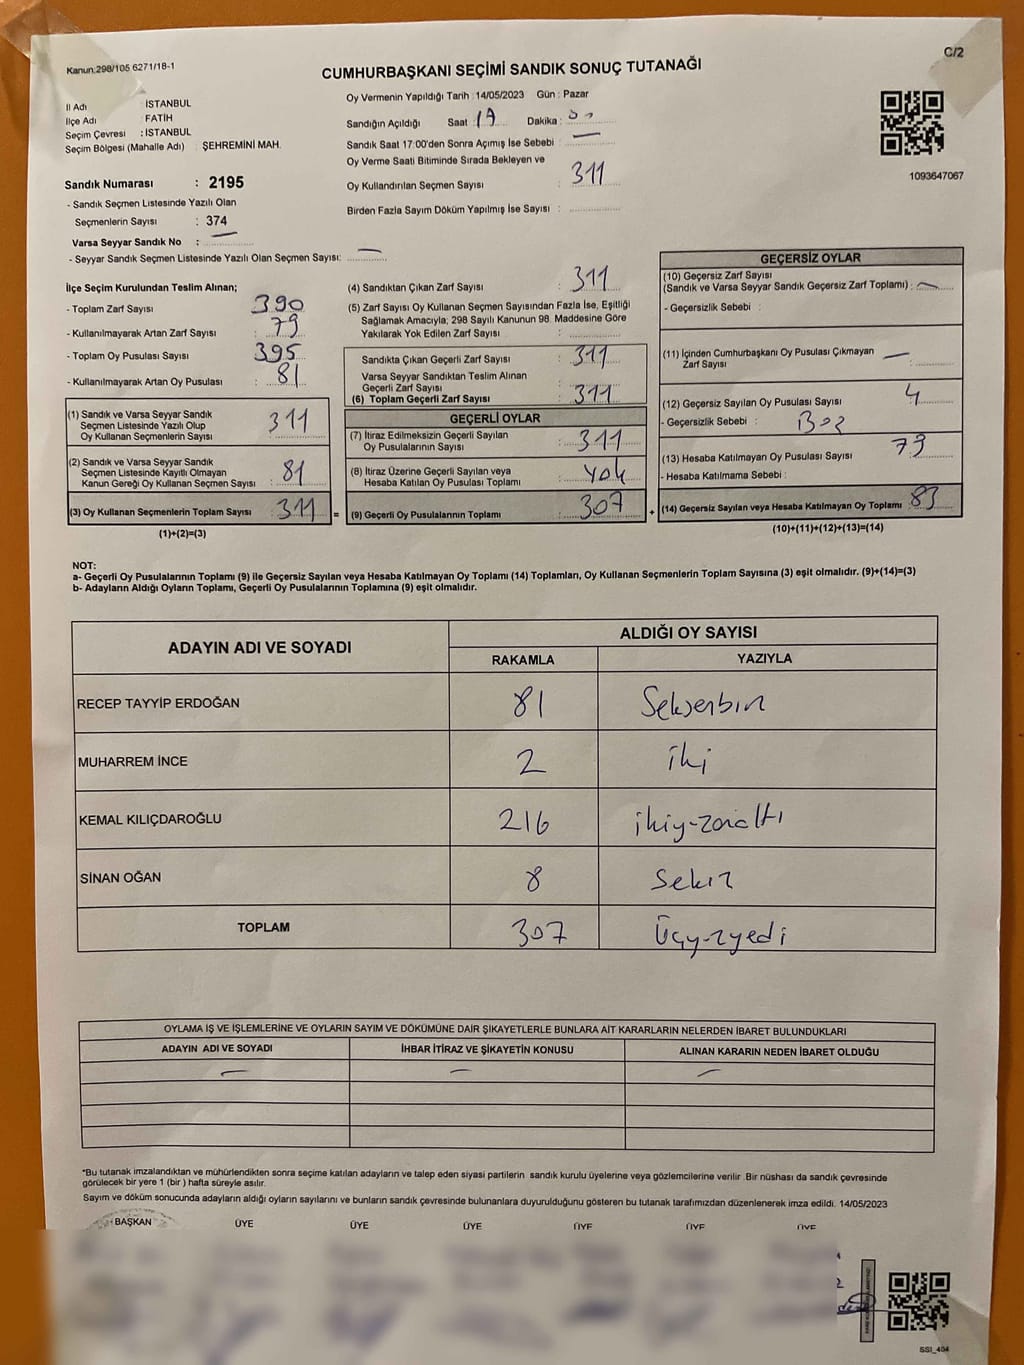 Kanun:298/105 6271/18-1
C/2
CUMHURBAŞKANI SEÇİMİ SANDIK SONUÇ TUTANAĞI
İl Adı : İSTANBUL
İlçe Adı : FATİH
Seçim Çevresi : İSTANBUL
Seçim Bölgesi (Mahalle Adı) : ŞEHREMİNİ MAH.
Sandık Numarası : 2195
- Sandık Seçmen Listesinde Yazılı Olan
Seçmenlerin Sayısı : 374
Varsa Seyyar Sandık No : —
- Seyyar Sandık Seçmen Listesinde Yazılı Olan Seçmen Sayısı: —
Oy Vermenin Yapıldığı Tarih :14/05/2023 Gün : Pazar
Sandığın Açıldığı Saat :19 Dakika : 00
Sandık Saat 17:00'den Sonra Açımış İse Sebebi : —
Oy Verme Saati Bitiminde Sırada Bekleyen ve
Oy Kullandırılan Seçmen Sayısı : 311
Birden Fazla Sayım Döküm Yapılmış İse Sayısı :
1093647067
İlçe Seçim Kurulundan Teslim Alınan;
- Toplam Zarf Sayısı : 390
- Kullanılmayarak Artan Zarf Sayısı : 79
- Toplam Oy Pusulası Sayısı : 395
- Kullanılmayarak Artan Oy Pusulası : 81
(1) Sandık ve Varsa Seyyar Sandık
Seçmen Listesinde Yazılı Olup
Oy Kullanan Seçmenlerin Sayısı : 311
(2) Sandık ve Varsa Seyyar Sandık
Seçmen Listesinde Kayıtlı Olmayan
Kanun Gereği Oy Kullanan Seçmen Sayısı : 81
(3) Oy Kullanan Seçmenlerin Toplam Sayısı : 311 =
(1)+(2)=(3)
(4) Sandıktan Çıkan Zarf Sayısı : 311
(5) Zarf Sayısı Oy Kullanan Seçmen Sayısından Fazla İse, Eşitliği
Sağlamak Amacıyla; 298 Sayılı Kanunun 98. Maddesine Göre
Yakılarak Yok Edilen Zarf Sayısı :
Sandıkta Çıkan Geçerli Zarf Sayısı : 311
Varsa Seyyar Sandıktan Teslim Alınan
Geçerli Zarf Sayısı
(6) Toplam Geçerli Zarf Sayısı : 311
GEÇERLİ OYLAR
(7) İtiraz Edilmeksizin Geçerli Sayılan
Oy Pusulalarının Sayısı : 311
(8) İtiraz Üzerine Geçerli Sayılan veya
Hesaba Katılan Oy Pusulası Toplamı : Yok
(9) Geçerli Oy Pusulalarının Toplamı : 307 +
GEÇERSİZ OYLAR
(10) Geçersiz Zarf Sayısı
(Sandık ve Varsa Seyyar Sandık Geçersiz Zarf Toplamı) : —
- Geçersizlik Sebebi :
(11) İçinden Cumhurbaşkanı Oy Pusulası Çıkmayan
Zarf Sayısı : —
(12) Geçersiz Sayılan Oy Pusulası Sayısı : 4
- Geçersizlik Sebebi : Boz
(13) Hesaba Katılmayan Oy Pusulası Sayısı : 79
- Hesaba Katılmama Sebebi :
(14) Geçersiz Sayılan veya Hesaba Katılmayan Oy Toplamı : 83
(10)+(11)+(12)+(13)=(14)
NOT:
a- Geçerli Oy Pusulalarının Toplamı (9) ile Geçersiz Sayılan veya Hesaba Katılmayan Oy Toplamı (14) Toplamları, Oy Kullanan Seçmenlerin Toplam Sayısına (3) eşit olmalıdır. (9)+(14)=(3)
b- Adayların Aldığı Oyların Toplamı, Geçerli Oy Pusulalarının Toplamına (9) eşit olmalıdır.
ADAYIN ADI VE SOYADI ALDIĞI OY SAYISI
RAKAMLA YAZIYLA
RECEP TAYYİP ERDOĞAN 81 Seksenbir
MUHARREM İNCE 2 iki
KEMAL KILIÇDAROĞLU 216 ikiyüzonaltı
SİNAN OĞAN 8 Sekiz
TOPLAM 307 Üçyüzyedi
OYLAMA İŞ VE İŞLEMLERİNE VE OYLARIN SAYIM VE DÖKÜMÜNE DAİR ŞİKAYETLERLE BUNLARA AİT KARARLARIN NELERDEN İBARET BULUNDUKLARI
ADAYIN ADI VE SOYADI İHBAR İTİRAZ VE ŞİKAYETİN KONUSU ALINAN KARARIN NEDEN İBARET OLDUĞU
— — —
*Bu tutanak imzalandıktan ve mühürlendikten sonra seçime katılan adayların ve talep eden siyasi partilerin sandık kurulu üyelerine veya gözlemcilerine verilir. Bir nüshası da sandık çevresinde
görülecek bir yere 1 (bir ) hafta süreyle asılır.
Sayım ve döküm sonucunda adayların aldığı oyların sayılarını ve bunların sandık çevresinde bulunanlara duyurulduğunu gösteren bu tutanak tarafımızdan düzenlenerek imza edildi. 14/05/2023
BAŞKAN ÜYE ÜYE ÜYE ÜYE ÜYE ÜYE
SSI_454